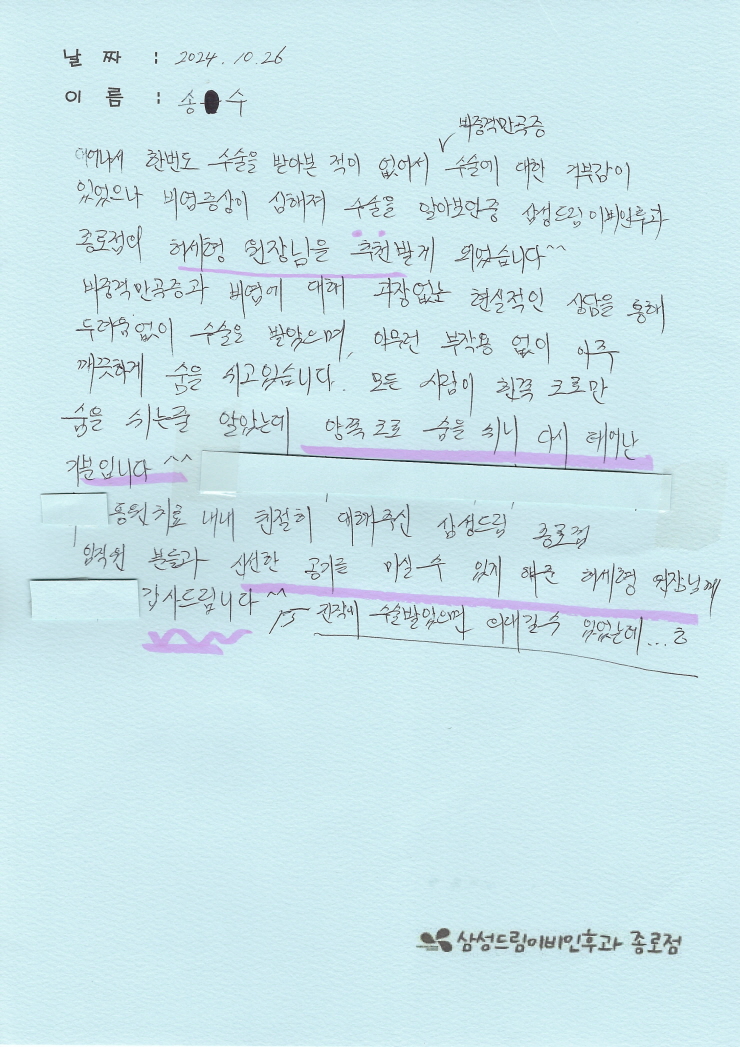 날 짜 : 2024. 10. 26
이 름 : 송 수
비중격만곡증
태어나서 한번도 수술을 받아본 적이 없어서 수술에 대한 거부감이
있었으나 비염증상이 심해져 수술을 알아보던중 삼성드림이비인후과
종로점의 허세형 원장님을 추천받게 되었습니다^^
비중격만곡증과 비염에 대해 과장없는 현실적인 상담을 통해
두려움없이 수술을 받았으며, 아무런 부작용 없이 아주
깨끗하게 숨을 쉬고있습니다. 모든 사람이 한쪽 코로만
숨을 쉬는줄 알았는데 양쪽코로 숨을 쉬니 다시 태어난
기분입니다 ^^
통원치료 내내 친절히 대해주신 삼성드림 종로점
임직원 분들과 신선한 공기를 마실수 있게 해준 허세형 원장님께
감사드립니다 ^^
PS 진작에 수술받았으면 의대갈수 있었는데...
삼성드림이비인후과 종로점